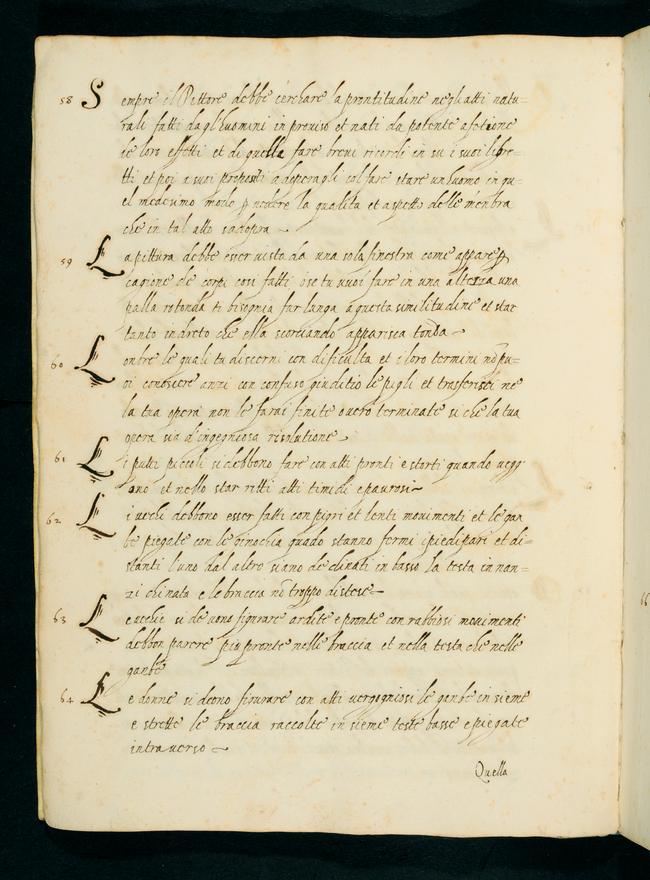 58 Sempre il Pittore debbe cerchare la prontitudine negliatti natu=
rali fatti dagl'huomini in proviso et nati da potente afetione
de loro effetti et di quella fare brevi ricordi in su i suoi libre=
tti et poi a suoi propositi adoperagli col fare stare un huomo in qu=
el medesimo modo p vedere la qualità et aspetti delle menbra
che in tal atto sadopra
59 La pittura debbe esser vista da una sola finestra come appare p
cagione de corpi cosi fatti o se tu vuoi fare in una alteza una
palla rotonda ti bisognia far langa a questa similitudine et star
tanto indreto che ella scorciando apparisca tonda
60 Lonbre le quali tu discerni con dificultà et i loro termini nō pu=
oi conoscere anzi con confuso giuditio le pigli et trasferisci ne
la tua opera non le farai finite overo terminate si che la tua
opera sia d'ingegniosa risolutione
61 Li putti piccoli si debbono fare con atti pronti e storti quando segg
ano et nello star ritti atti timidi e paurosi
62 Li vechi debbono esser fatti con pigri et lenti movimenti et le gan
be piegate con le ginochia quādo stanno fermi i piedi pari et di=
stanti l'uno dal altro siano declinati in basso la testa in nan=
zi chinata e le braccia nō troppo distese
63 Le vechie si devono figurare ardite e pronte con rabbiosi movimenti
debbon parere più pronte nelle braccia et nella testa che nelle
ganbe
64 Le donne si deono figurare con atti vergogniosi le ganbe insieme
e strette le braccia raccolte insieme teste basse e piegate
intraverso
Quella